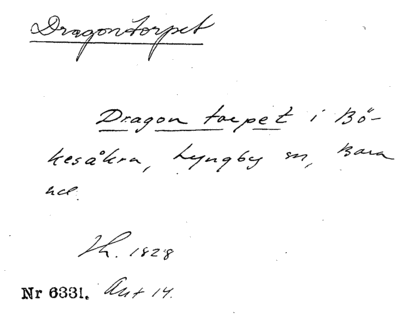 Dragontorpet
Dragon torpet i Bö-
kesåkra, Lyngby sn, Bara
hd.
Th. 1828
Nr 6331. Ant 14.